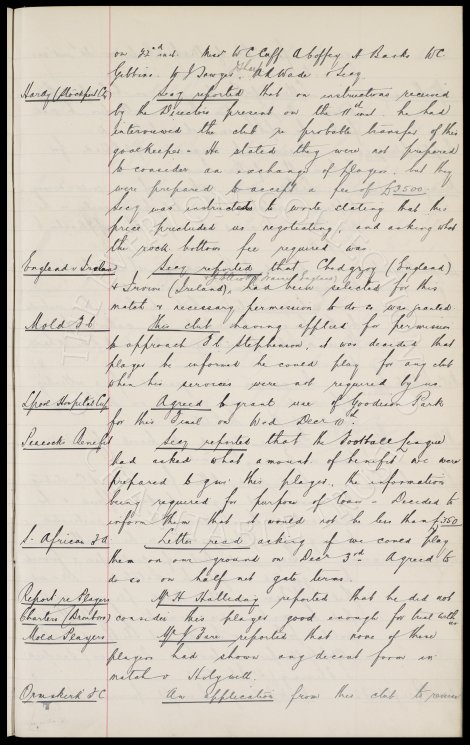 on 22nd inst. Messrs W C Cuff A Coffey A Banks W C
Gibbins W J Sawyer A H Wade & Secy
Hardy (Stockport Cy) Secy reported that on instructions received
by the Directors present on the 11th inst. he had
interviewed the club re probable transfer of this
goalkeeper. He stated they were not prepared
to consider an exchange of players, but they
were prepared to accept a fee of £3500.
Secy was instructed to write stating that this
price precluded us negotiating, and asking what
the rock bottom fee required was.
England v Ireland Secy reported that Chedgzoy (England)
& Irvine (Ireland), had been selected for this
match & necessary permission to do so was granted.
Mold F.C. This club having applied for permission
to approach F.C. Stephenson, it was decided that
player be informed he could play for any club
when his services were not required by us.
Lpool Hospital Cup Agreed to grant use of Goodison Park
for this Final on Wed Decr 10th.
Peacocks Benefit Secy reported that the Football League
had asked what amount of benefit we were
prepared to give this player, the information
being required for purpose of loan. Decided to
inform them that it would not be less than £350
S. African F.A. Letter read asking if we could play
them on our ground on Decr 3rd. Agreed to
do so on half net gate terms.
Report re Players Mr H Halliday reported that he did not
Charters (Breeton) consider this player good enough for trial with us
Mold Players Mr J Fare reported that none of these
players had shown any decent form in
match v Holywell.
Ormskirk F.C. An application from this club to